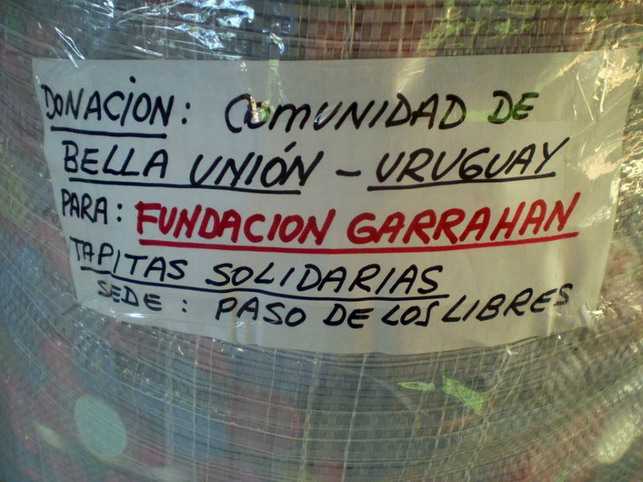 DONACION: COMUNIDAD DE
BELLA UNIÓN - URUGUAY
PARA: FUNDACION GARRAHAN
TAPITAS SOLIDARIAS
SEDE: PASO DE LOS LIBRES